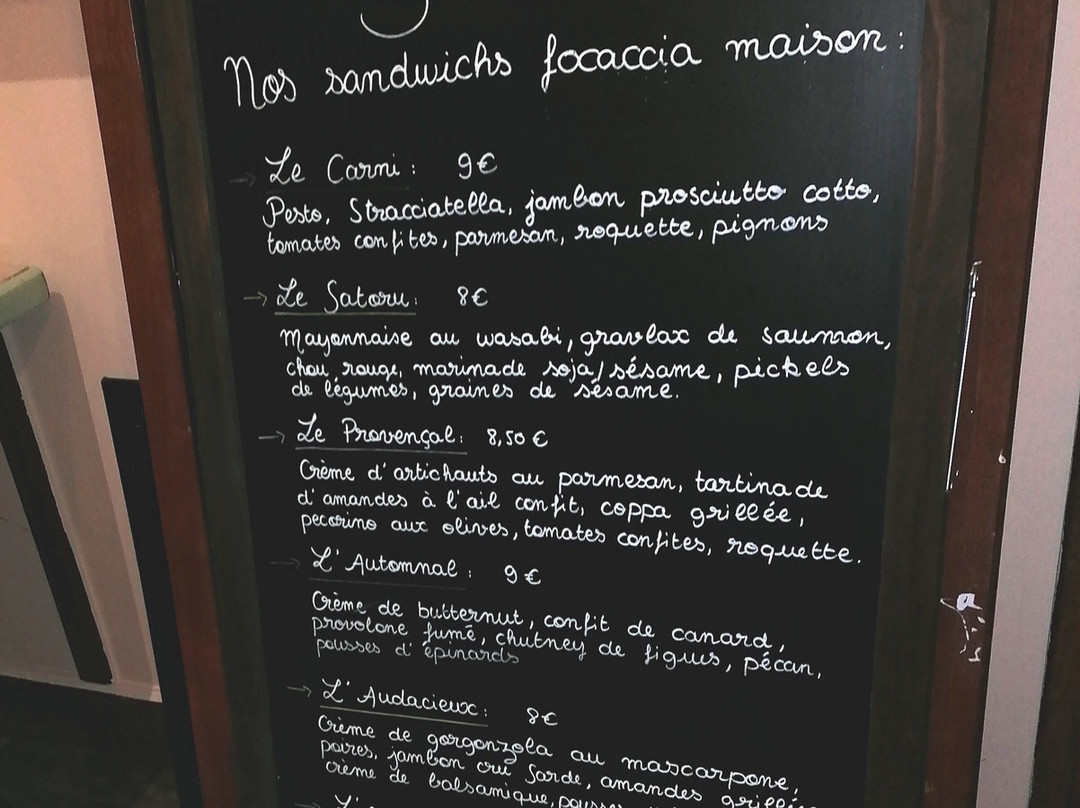 Nos sandwichs focaccia maison :
→ Le Carni : 9€
Pesto, Stracciatella, jambon prosciutto cotto,
tomates confites, parmesan, roquette, pignons
→ Le Satoru : 8€
Mayonnaise au wasabi, gravlax de saumon,
chou rouge, marinade soja/sésame, pickels
de légumes, graines de sésame.
→ Le Provençal : 8,50 €
Crème d'artichauts au parmesan, tartinade
d'amandes à l'ail confit, coppa grillée,
pecorino aux olives, tomates confites, roquette.
→ L'Automnal : 9 €
Crème de butternut, confit de canard,
provolone fumé, chutney de figues, pécan,
pousses d'épinards
→ L'Audacieux : 8€
Crème de gorgonzola au mascarpone,
poires, jambon cru Sarde, amandes
crème de balsamique,